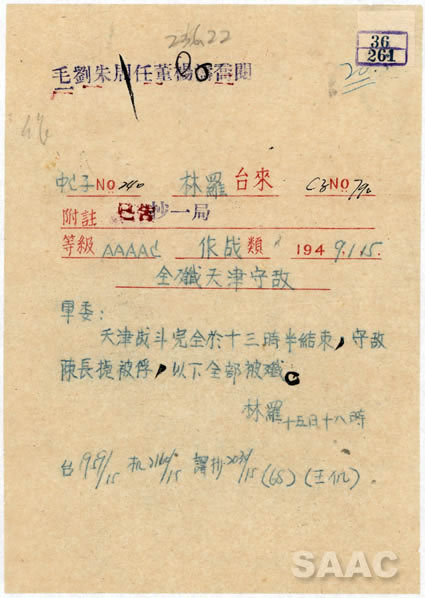 23622
36
261
毛劉朱周任董楊聶
20.
中子 NO 240 林羅台來 C3 NO 790
附註 已告 抄一局
等級 AAAAC 作战類 1949.1.15.
全殲天津守敌
軍委：
天津战斗完全於十三時半結束，守敌
陳長捷被俘，以下全部被殲。
林羅 十五日十八時
台1959/15 机2160/15 譯抄2030/15 (65) (王仉).
SAAC